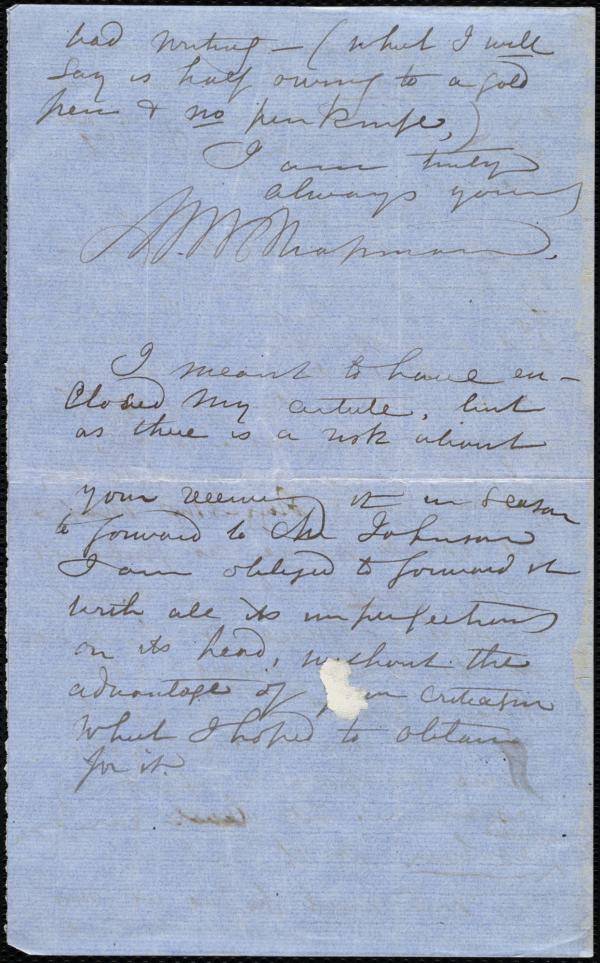 bad writing – (what I will
say is half owing to a gold
pen & no penknife,)
I am truly
always yours
M. W. Chapman.
I meant to have en-
closed my article, but
as there is a risk about
your receiving it in season
to forward to Mr Johnson
I am obliged to forward it
with all its imperfections
on its head, without the
advantage of criticism
what I hoped to obtain
for it.